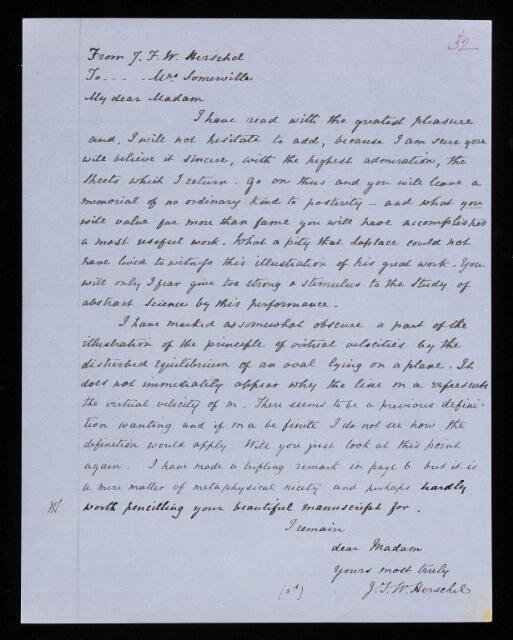 32
From J. F. W. Herschel
To - - - - Mrs Somerville
My dear Madam
I have read with the greatest pleasure
and, I will not hesitate to add, because I am sure you
will believe it sincere, with the highest admiration, the
Sheets which I return. Go on thus and you will leave a
memorial of no ordinary kind to posterity – and what you
will value far more than fame you will have accomplished
a most useful work. What a pity that Laplace could not
have lived to witness this illustration of his great work. You
will only I fear give too strong a stimulus to the Study of
abstract Science by this performance.
I have marked as somewhat obscure a part of the
illustration of the principle of virtual velocities by the
disturbed Equilibrium of an oval lying on a plane. It
does not immediately appear why the line m a represents
the virtual velocity of m. There seems to be a previous defini-
tion wanting and if m a be finite I do not see how the
definition would apply Will you just look at this point
again. I have made a trifling remark in page 6 but it is
a mere matter of metaphysical nicety and perhaps hardly
worth pencilling your beautiful manuscript for.
I remain
dear Madam
Yours most truly
J. F. W. Herschel